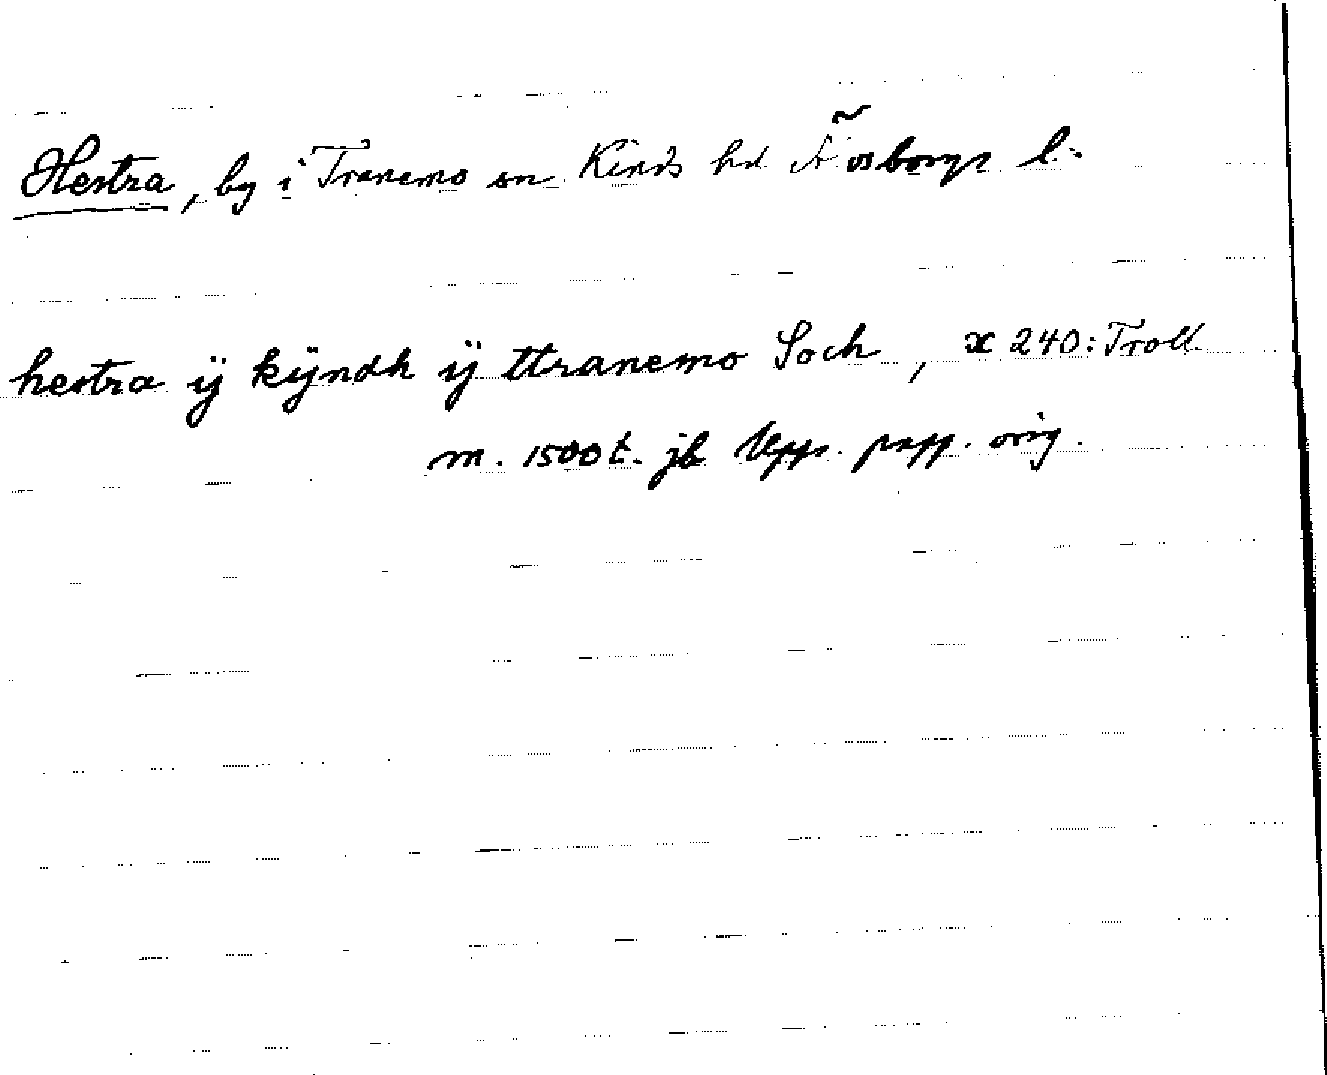 Hestra, by i Tranemo sn Kinds hd Älvsborgs l:
hestra ÿ kÿndh ÿ ttranemo Soch, x 240: Troll
m. 1500 t. jb Upps. papp. orig.